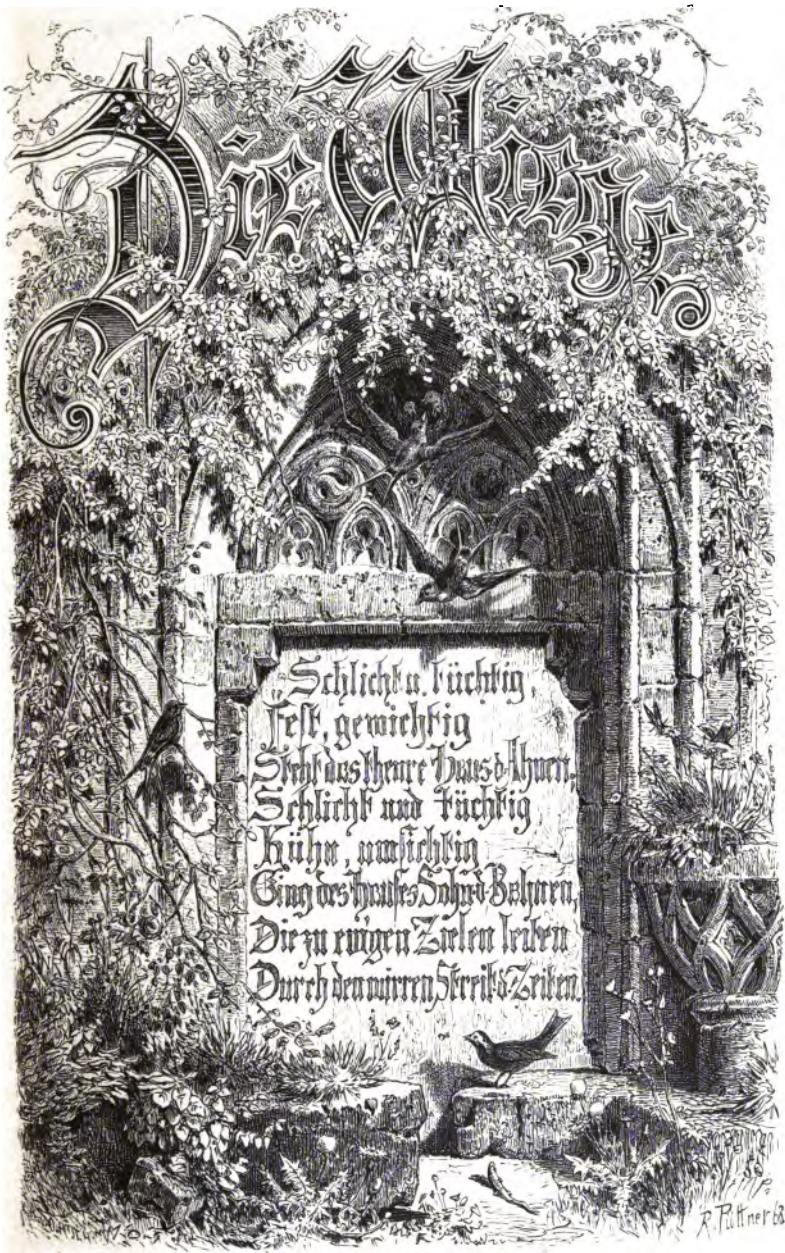 Die Wiege
Schlicht u. tüchtig,
Fest, gewichtig
Steht das theure Haus d. Ahnen.
Schlicht und tüchtig
Kühn, umsichtig
Ging des Hauses Sohn d. Bahnen,
Die zu ew'gen Zielen leiten
Durch den wirren Streit d. Zeiten.
R. Püttner 68